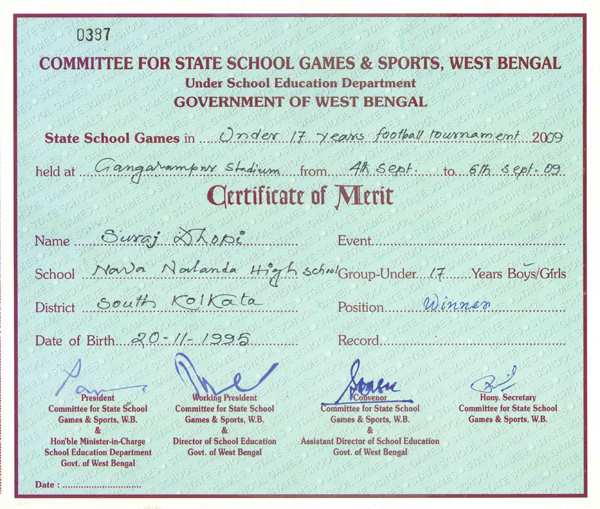 0397
COMMITTEE FOR STATE SCHOOL GAMES & SPORTS, WEST BENGAL
Under School Education Department
GOVERNMENT OF WEST BENGAL
State School Games in Under 17 years football tournament 2009
held at Gangarampur Stadium from 4th Sept. to 6th Sept. 09
Certificate of Merit
Name Suraj Dhobi Event
School Nava Nalanda High school Group-Under 17 Years Boys/Girls
District South Kolkata Position Winner
Date of Birth 20-11-1995 Record
President Working President Convenor Hony. Secretary
Committee for State School Committee for State School Committee for State School Committee for State School
Games & Sports, W.B. Games & Sports, W.B. Games & Sports, W.B. Games & Sports, W.B.
& & &
Hon'ble Minister-in-Charge Director of School Education Assistant Director of School Education
School Education Department Govt. of West Bengal Govt. of West Bengal
Govt. of West Bengal
Date :